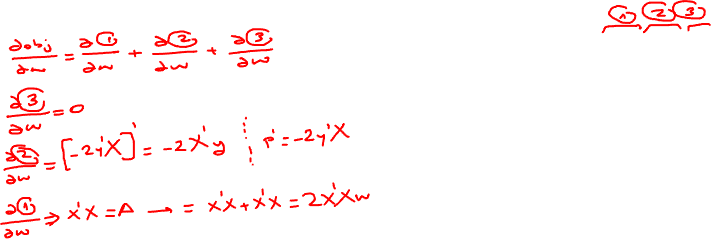 ① ② ③
∂obj/∂w = ∂①/∂w + ∂②/∂w + ∂③/∂w
∂③/∂w = 0
∂②/∂w = [-2y'X]' = -2X'y ⋮ p' = -2y'X
∂①/∂w ⇒ x'X = A → = x'X + x'X = 2X'Xw